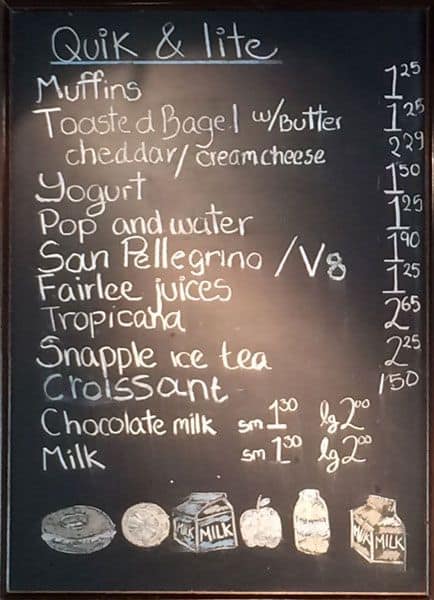 Quik & lite
Muffins 1.25
Toasted Bagel w/Butter 1.25
cheddar/creamcheese 2.29
Yogurt 1.50
Pop and water 1.25
San Pellegrino /V8 1.90
Fairlee juices 1.25
Tropicana 2.65
Snapple ice tea 2.25
Croissant 1.50
Chocolate milk sm 1.30 lg 2.00
Milk sm 1.30 lg 2.00
MILK MILK MILK MILK